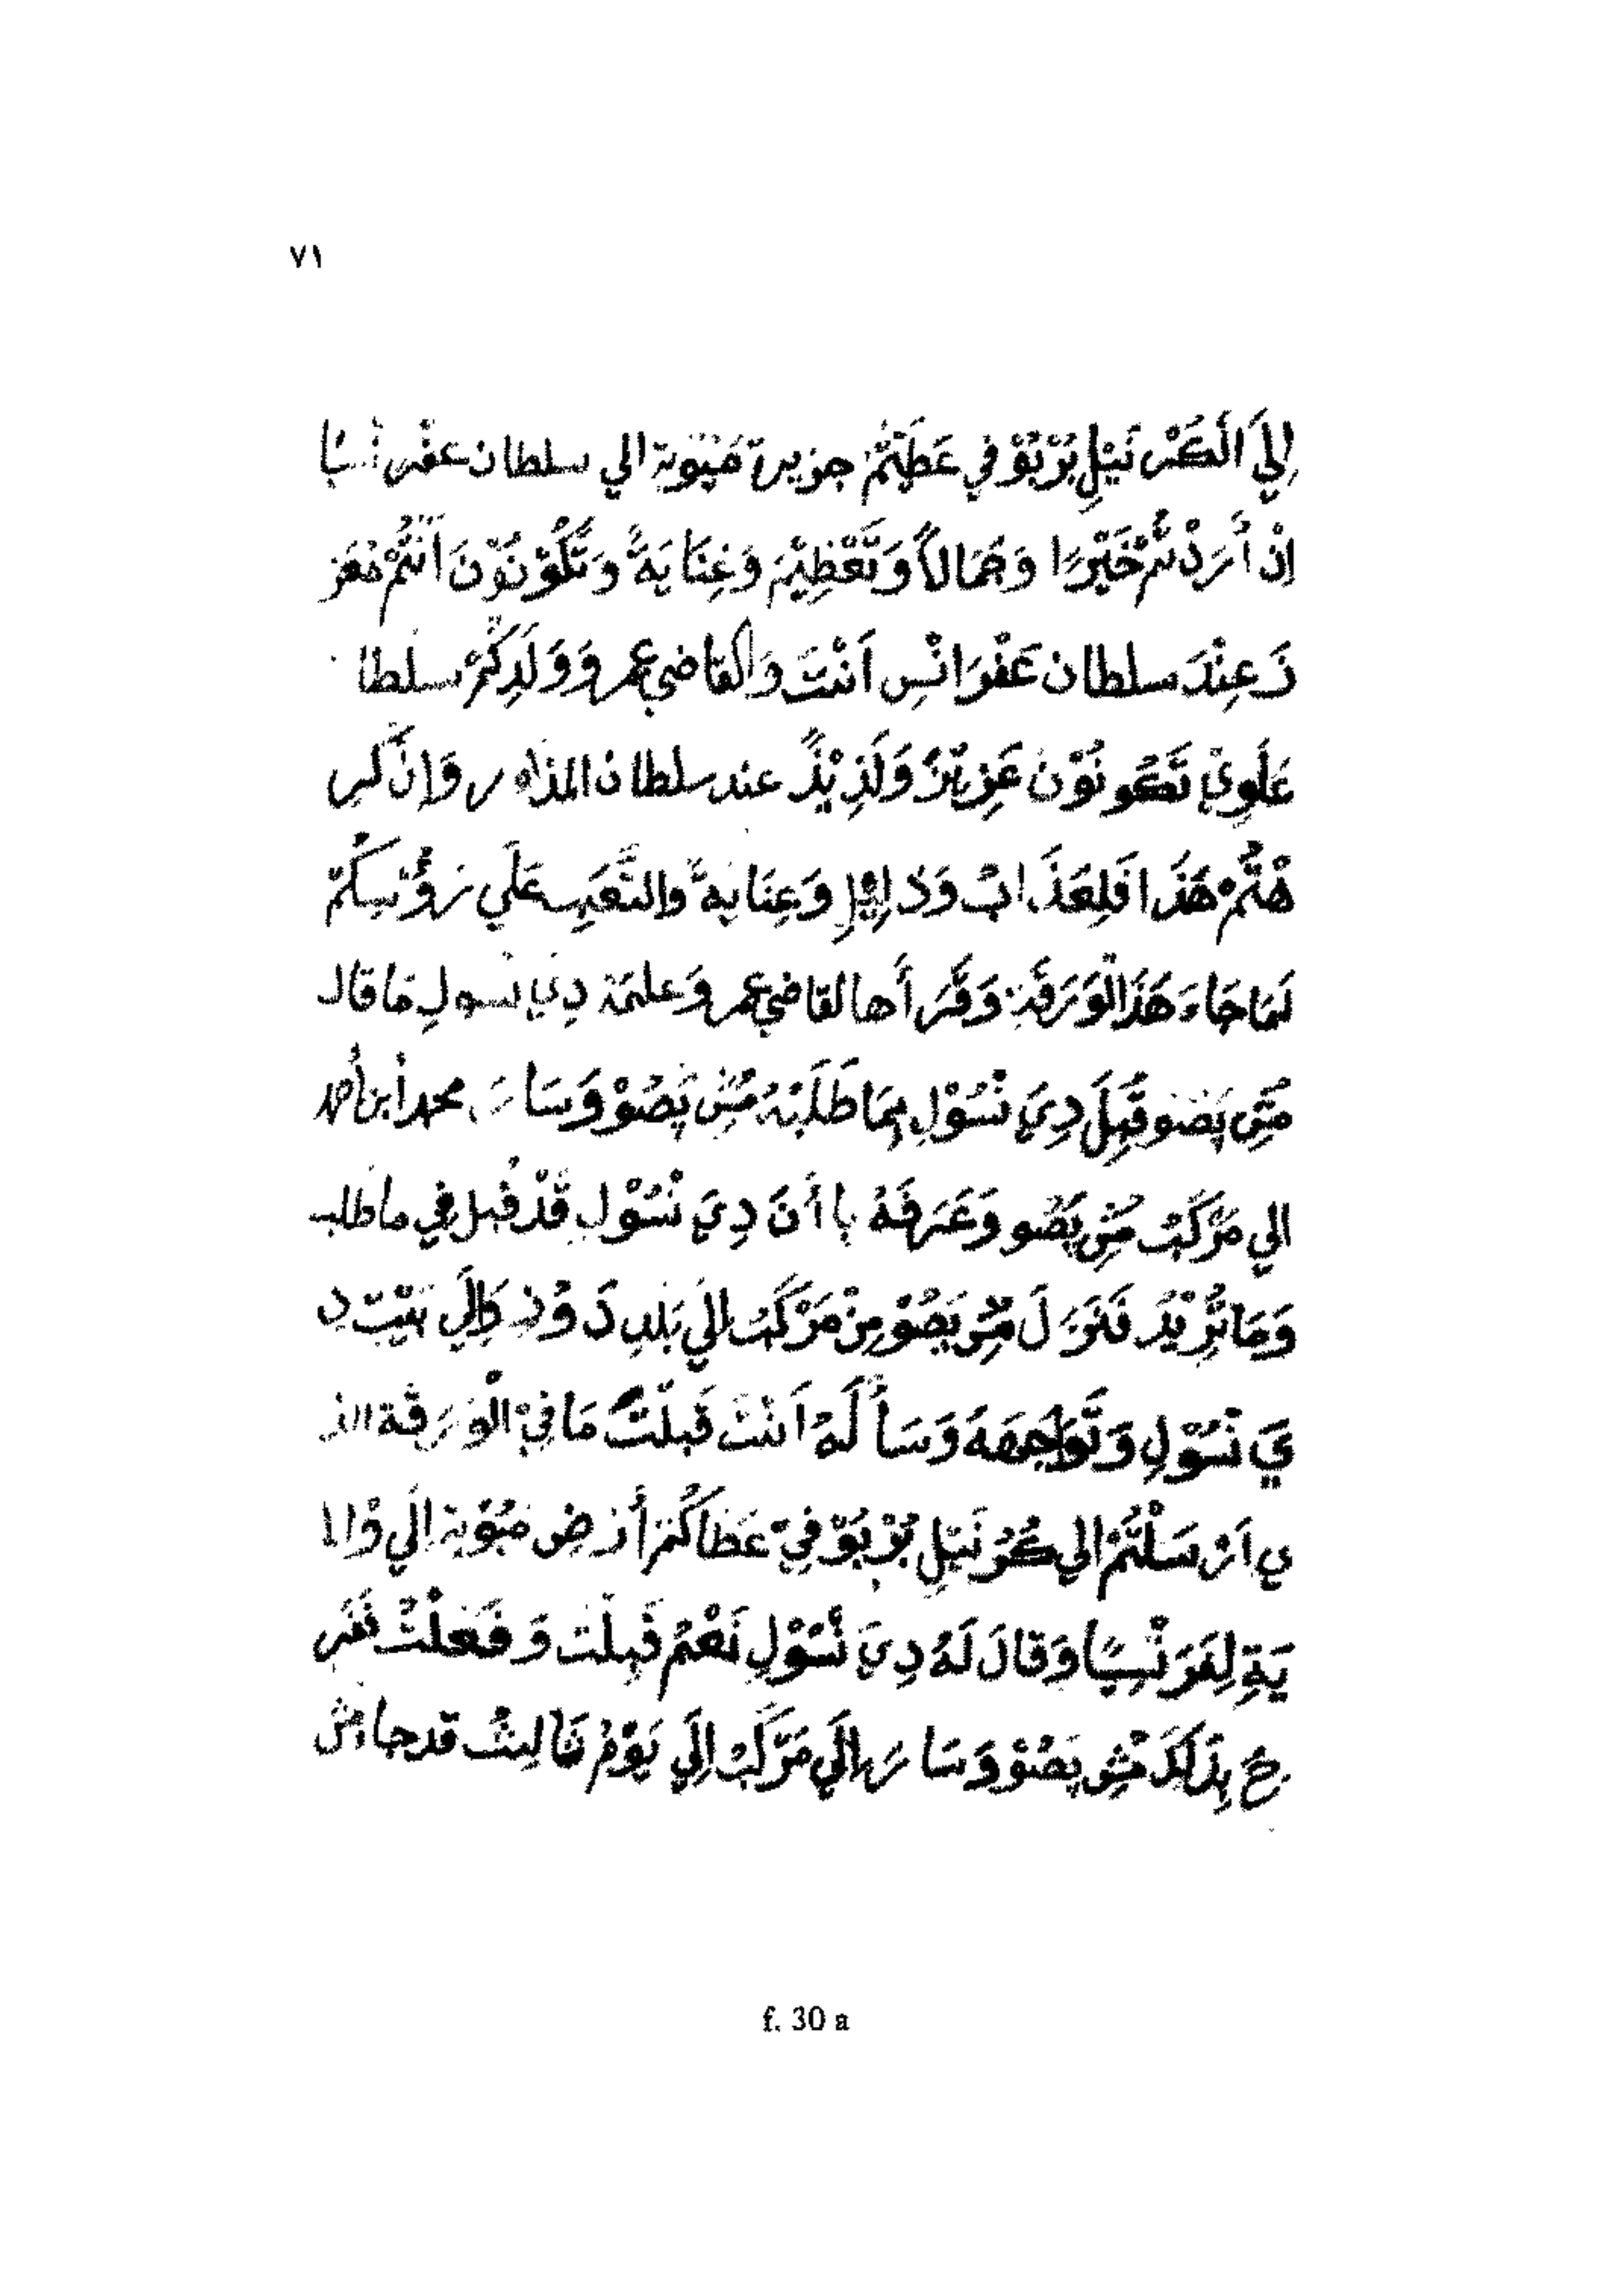 ٧١
إِلَي الْكُرْنَيْلِ بُرْبُوْ فِي عَطَيْتُمْ جزيرة مَيُوتة الي سلطان عفرانسيا
اِنْ أَرَدْتُمْ خَيْرًا وَجَمَالاً وَتَعْظِيْمَ وَعِنَايَةً وَتَكُوْنُوْنَ اَنْتُمْ مُعَز
زَ عِنْدَ سلطان عَفْرَانْسِ اَنْتَ وَالقاضي عمر وَوَلَدِكُمْ سلطا
عَلَوِيْ تَكُونُوْنَ عَزِيْزٌ وَلَذِيْذٌ عند سلطان المذكور وَإِنْ كَرِ
هْتُمْ هَذَا فَلِعَذَابْ وَدَلِيْلِ وَعِنَايةً والتَّعَبِ عَلَي رَؤُسِكُمْ
لَمَا جَاءَ هَذَالْوَرَقَةِ وَقَرَأَها القاضي عمر وَعلمَهْ دِيَ نْسُولِ مَا قال
مَشِ پَصُو قَبِلَ دِيَ نْسُوْلِ بِمَا طَلَبَهُ مُشِ پَصُوْ وَسَارَ محمد أبن أحمد
الي مَرْكَبْ مُشِ پَصُو وَعَرَفَهُ بِاأَنَ دِيَ نْسُوْلِ قَدْ قبل في ما طلب
وَمَا يُرِيْدَ فَنَزَلَ مُشِ پَصُوْ مِنْ مَرْكَبْ اِلَي بَلَدِ دَوُنِ وَاِلَي بَيْتِ دِ
يَ نْسُوْلِ وَتَوَاجَهَهَ وَسَأَلَهُ اَنْتَ قَبِلْتَ مَا فِيْ الْوَرَقَة الذ
ي اَرْسَلْتُمْ الي كُرْنَيْلِ بُرْبُوْ فِيْ عَطَاكُمْ أَرْضِ مَيُوْتة اِلَي وْالا
يَةِ لِفَرَنْسِيًا وَقَالَ لَهُ دِيَ نْسُوْلِ نَعْمْ قَبِلْت وَفَعَلْتْ فَفَرِ
حَ بِذَلِكَ مُشِ پَصُوْ وَسَارَ اِلَي مَرْكَبْ اِلَي يَوْمْ ثَالِثْ قد جا مُش
f. 30 a